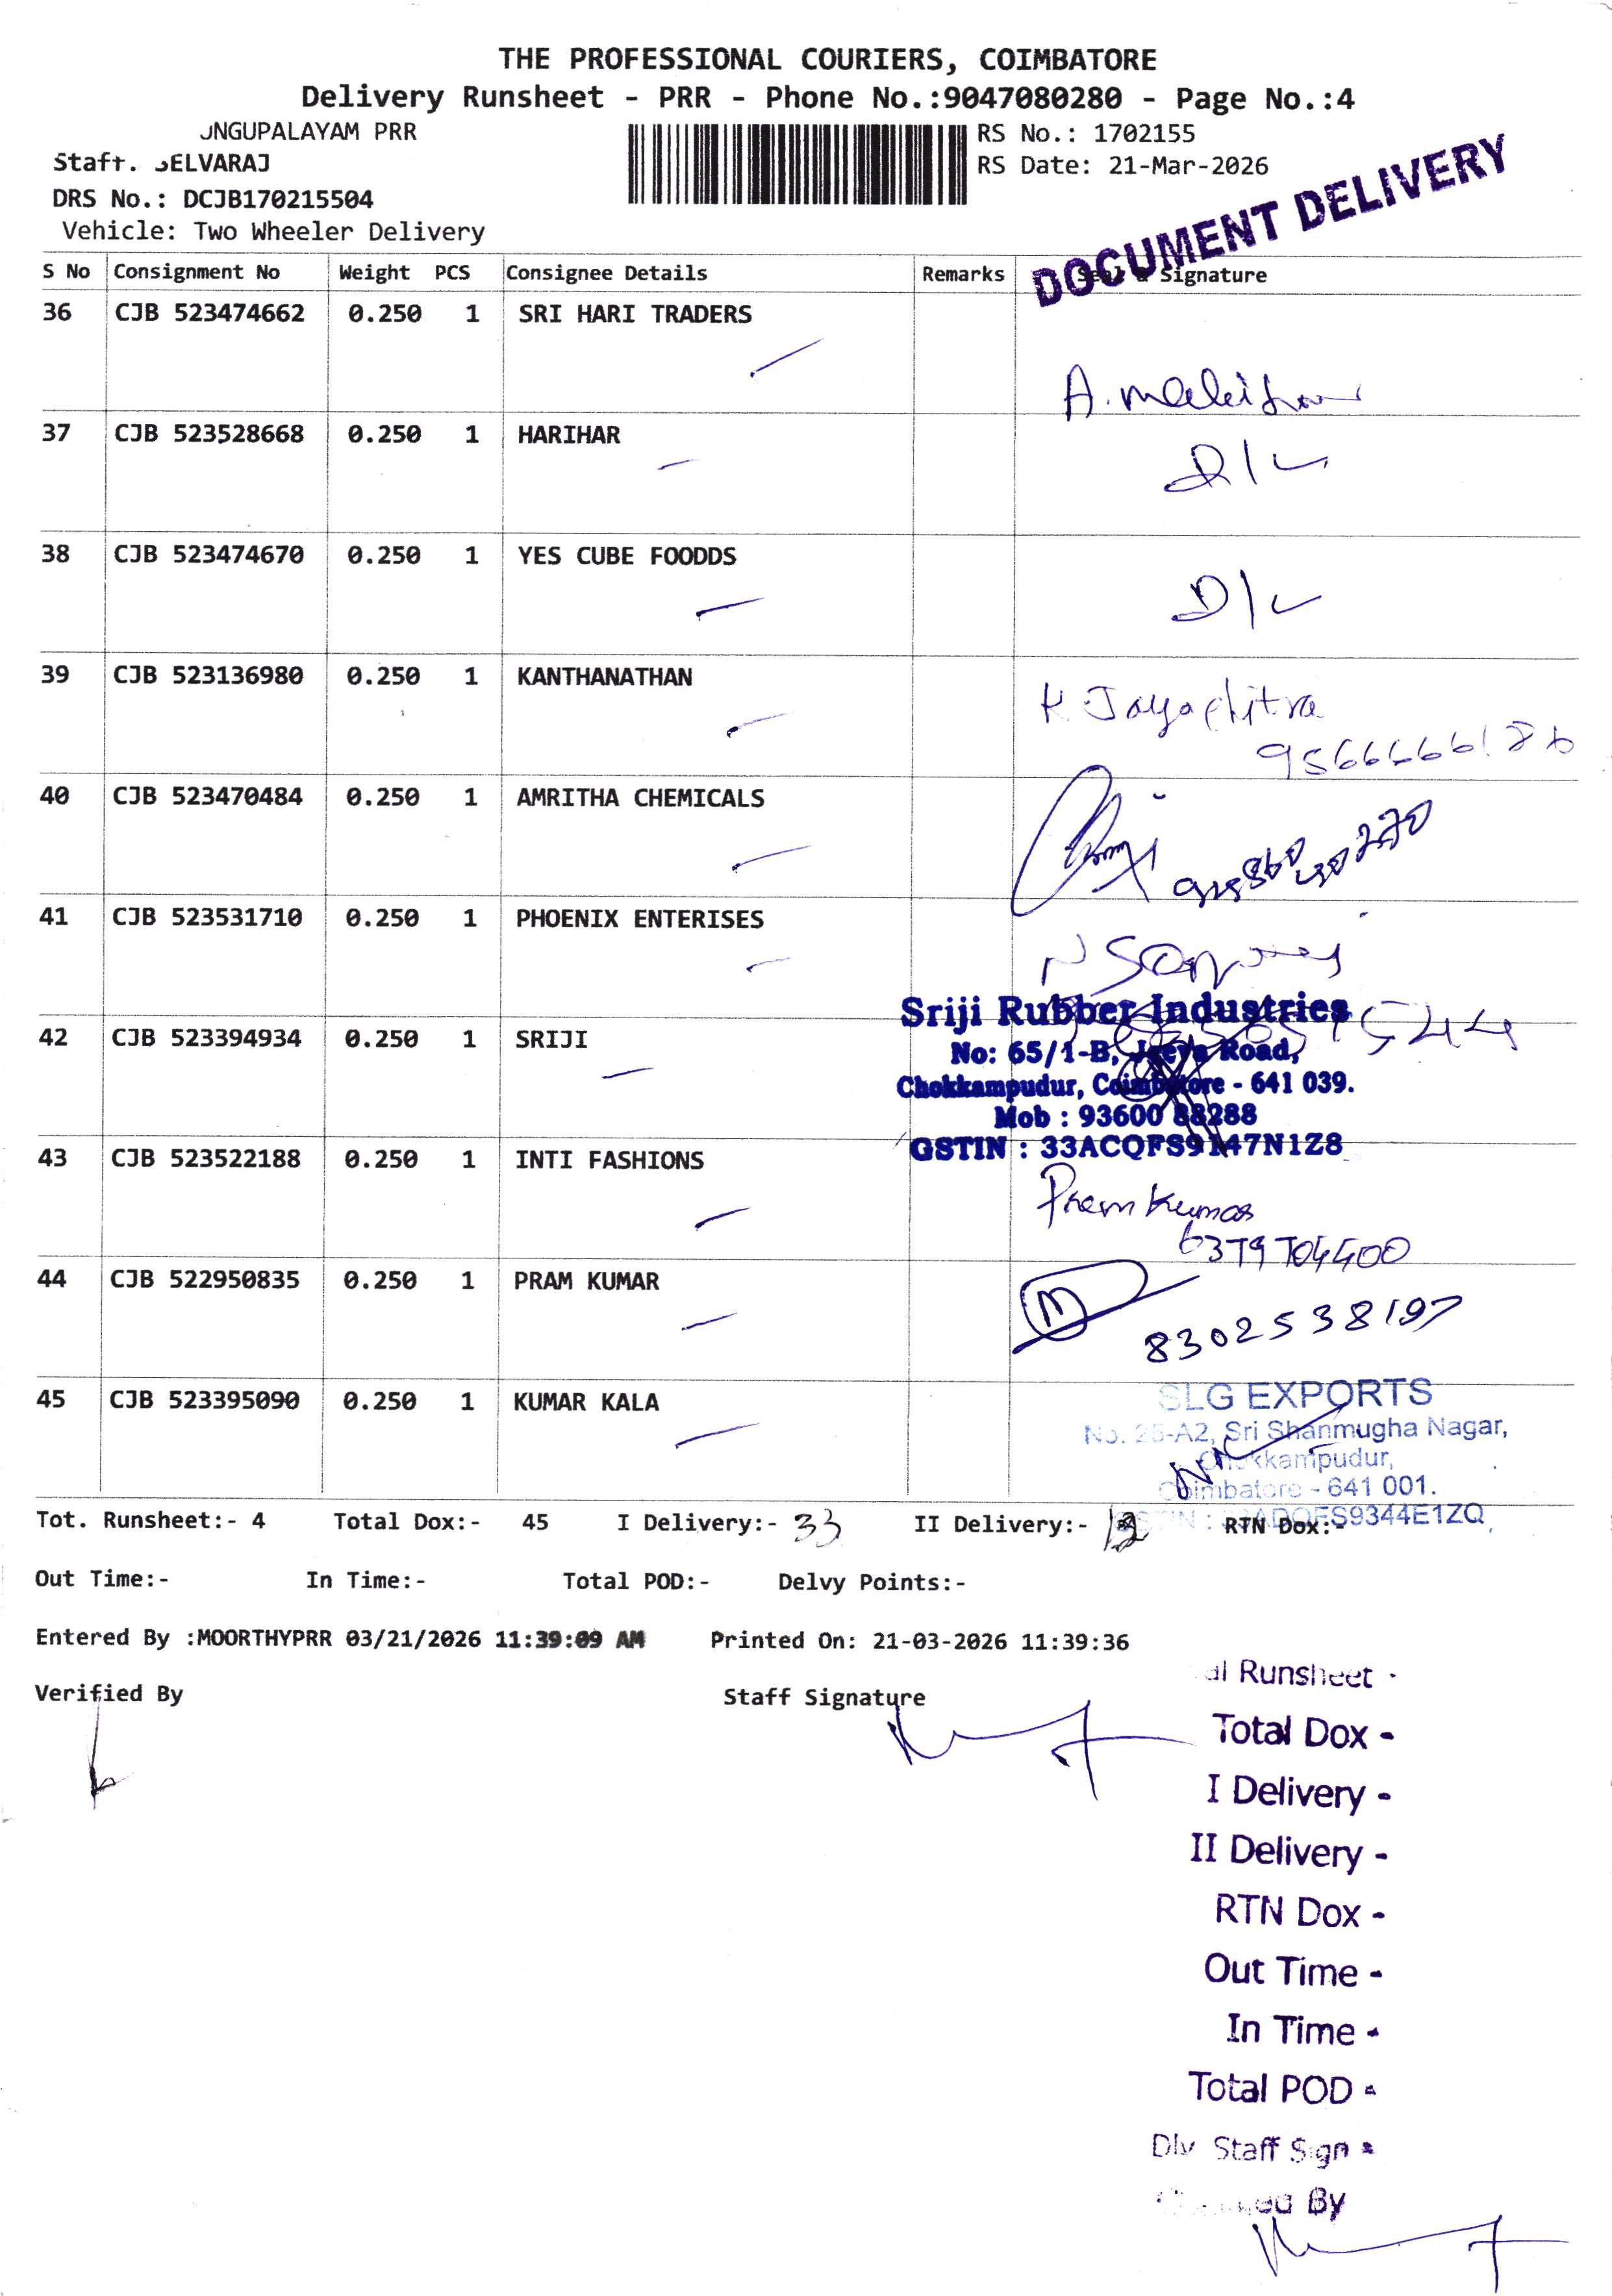 THE PROFESSIONAL COURIERS, COIMBATORE
Delivery Runsheet - PRR - Phone No.:9047080280 - Page No.:4
UNGUPALAYAM PRR
RS No.: 1702155
Staff. SELVARAJ
RS Date: 21-Mar-2026
DRS No.: DCJB170215504
DOCUMENT DELIVERY
Vehicle: Two Wheeler Delivery
S No Consignment No Weight PCS Consignee Details Remarks Seal & Signature
36 CJB 523474662 0.250 1 SRI HARI TRADERS
37 CJB 523528668 0.250 1 HARIHAR
D/L
38 CJB 523474670 0.250 1 YES CUBE FOODDS
D/L
39 CJB 523136980 0.250 1 KANTHANATHAN
K. Jayachitra
40 CJB 523470484 0.250 1 AMRITHA CHEMICALS
41 CJB 523531710 0.250 1 PHOENIX ENTERISES
Sriji Rubber Industries
42 CJB 523394934 0.250 1 SRIJI
No: 65/1-B, Jeeva Road,
Chokkampudur, Coimbatore - 641 039.
Mob : 93600 88288
GSTIN : 33ACQFS9147N1Z8
43 CJB 523522188 0.250 1 INTI FASHIONS
Prem Kumar
6379704400
44 CJB 522950835 0.250 1 PRAM KUMAR
8302538197
45 CJB 523395090 0.250 1 KUMAR KALA
SLG EXPORTS
No. 25-A2, Sri Shanmugha Nagar,
Chokkampudur,
Coimbatore - 641 001.
Tot. Runsheet:- 4 Total Dox:- 45 I Delivery:- 33 II Delivery:- 12 RTN Dox:-
Out Time:- In Time:- Total POD:- Delvy Points:-
Entered By :MOORTHYPRR 03/21/2026 11:39:09 AM Printed On: 21-03-2026 11:39:36
Verified By Staff Signature
al Runsheet -
Total Dox -
I Delivery -
II Delivery -
RTN Dox -
Out Time -
In Time -
Total POD -
Dlv Staff Sign -
By